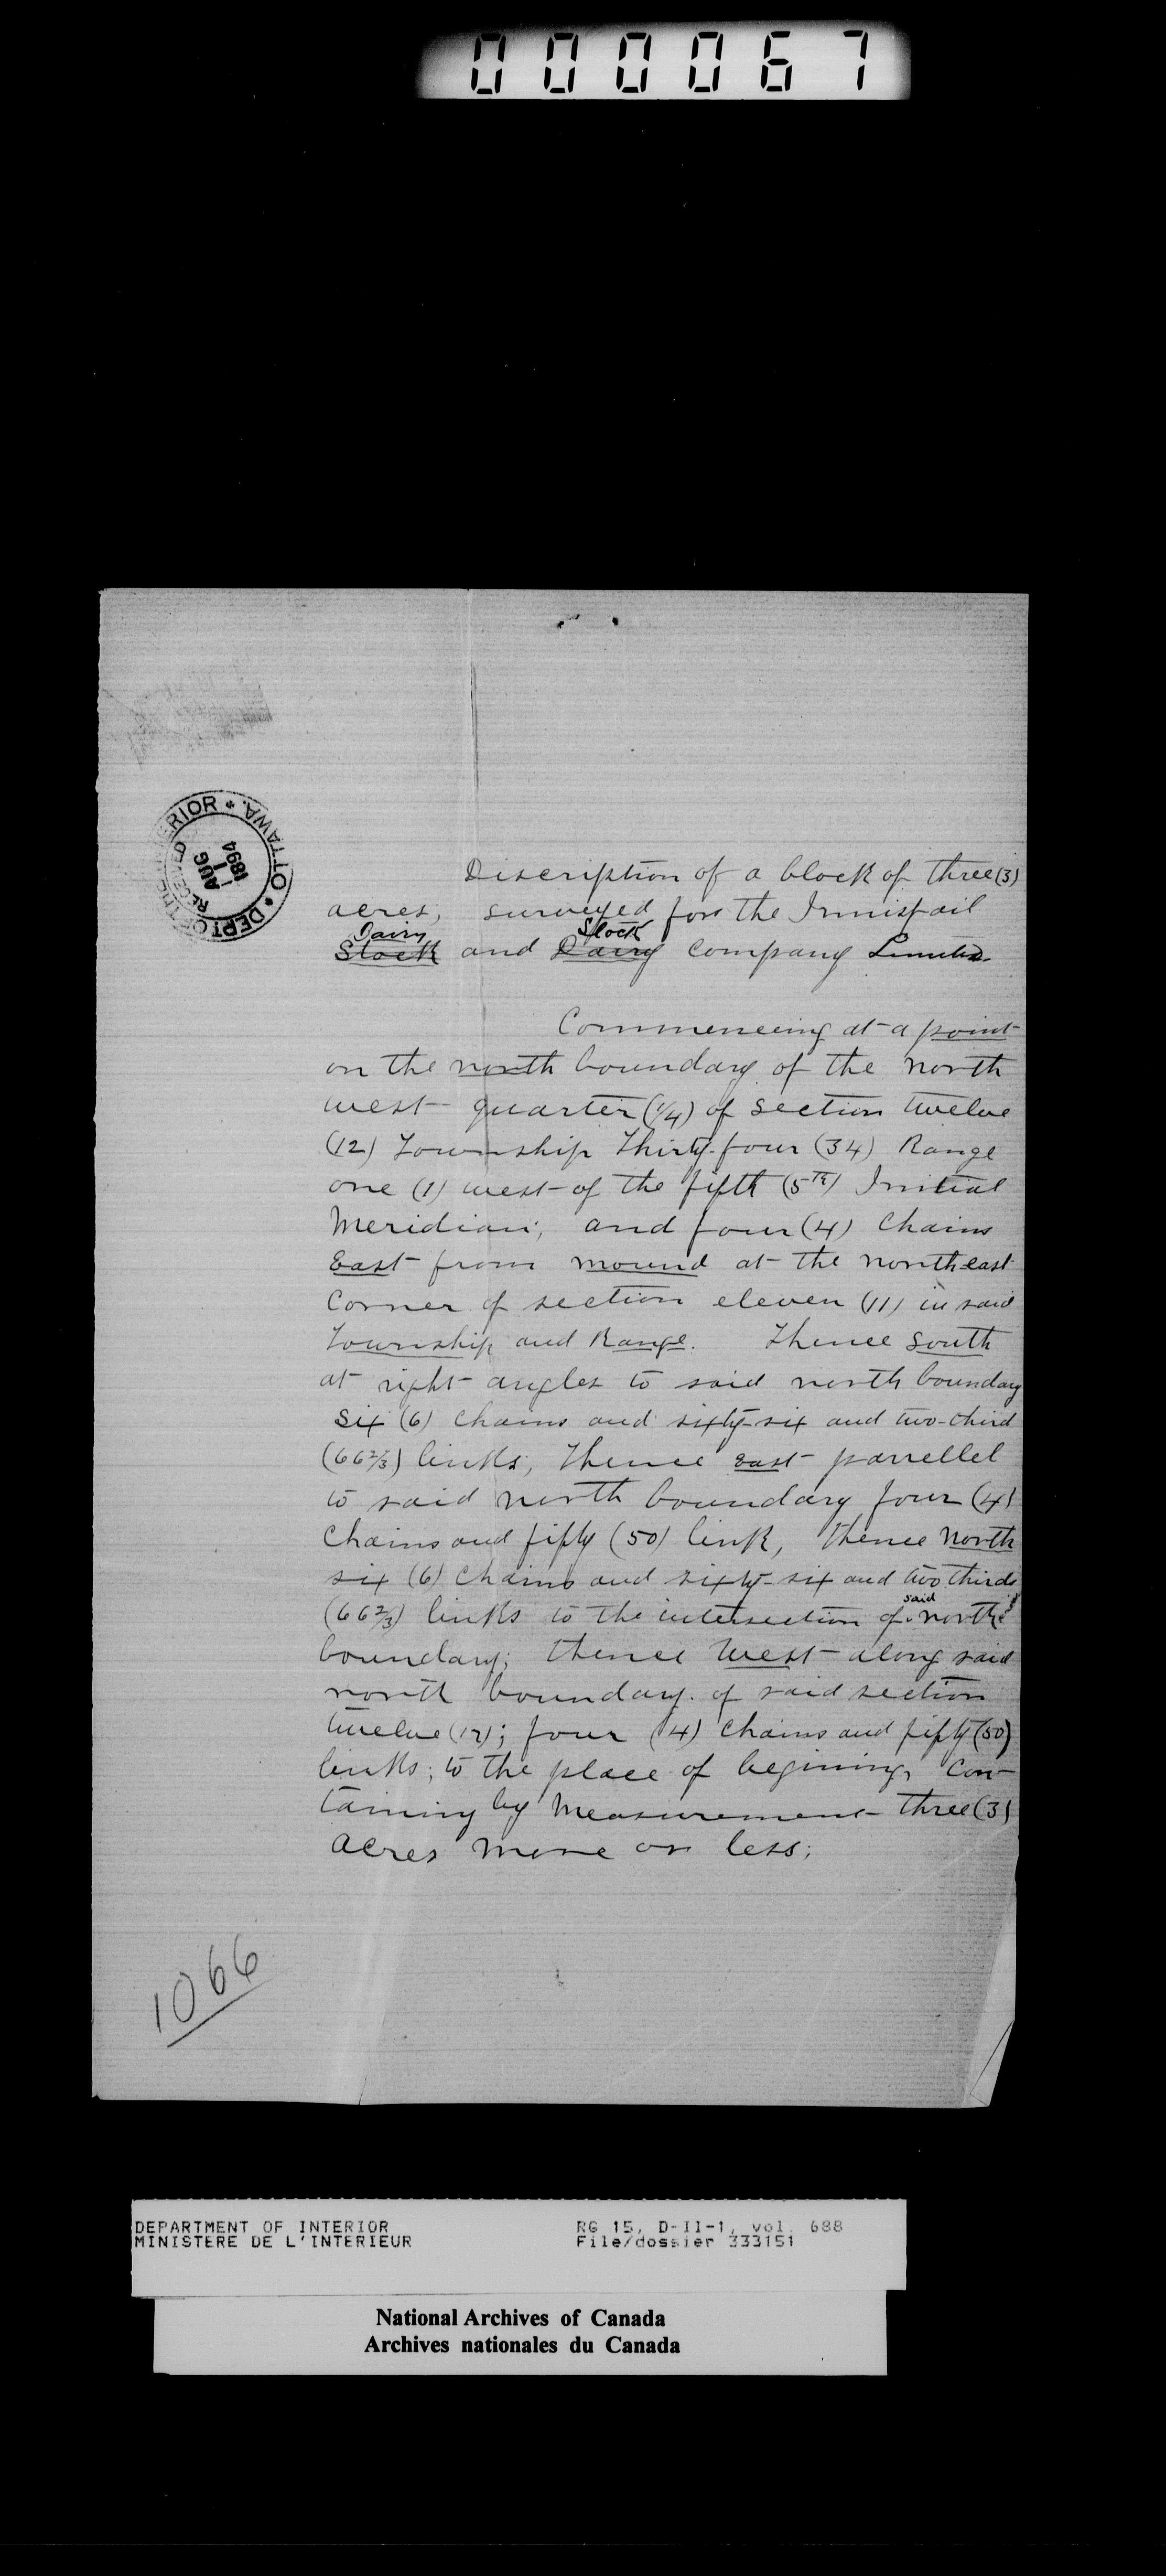 000067
DEPT OF THE INTERIOR * OTTAWA. *
RECEIVED
AUG
1
1894
Discription of a block of three (3)
acres, surveyed for the Innisfail
Dairy Stock
Stock and Dairy Company Limited.
Commenceing at a point
on the north boundary of the north
west quarter (1/4) of section twelve
(12) Township Thirty-four (34) Range
one (1) west of the fifth (5th) Initial
Meridian; and four (4) Chains
East from mound at the north-east
Corner of section eleven (11) in said
Township and Range. Thence South
at right angles to said north boundary
Six (6) Chains and sixty-six and two-third
(66 2/3) links; Thence East parrellel
to said north boundary four (4)
Chains and fifty (50) link, thence North
six (6) Chains and sixty-six and two thirds
(66 2/3) links to the intersection of said north
boundary; thence West along said
north boundary of said section
twelve (12); four (4) Chains and fifty (50)
links; to the place of begining, Con-
taining by Measurement three (3)
acres more or less;
1066
DEPARTMENT OF INTERIOR
MINISTERE DE L'INTERIEUR
RG 15, D-II-1, vol. 688
File/dossier 333151
National Archives of Canada
Archives nationales du Canada